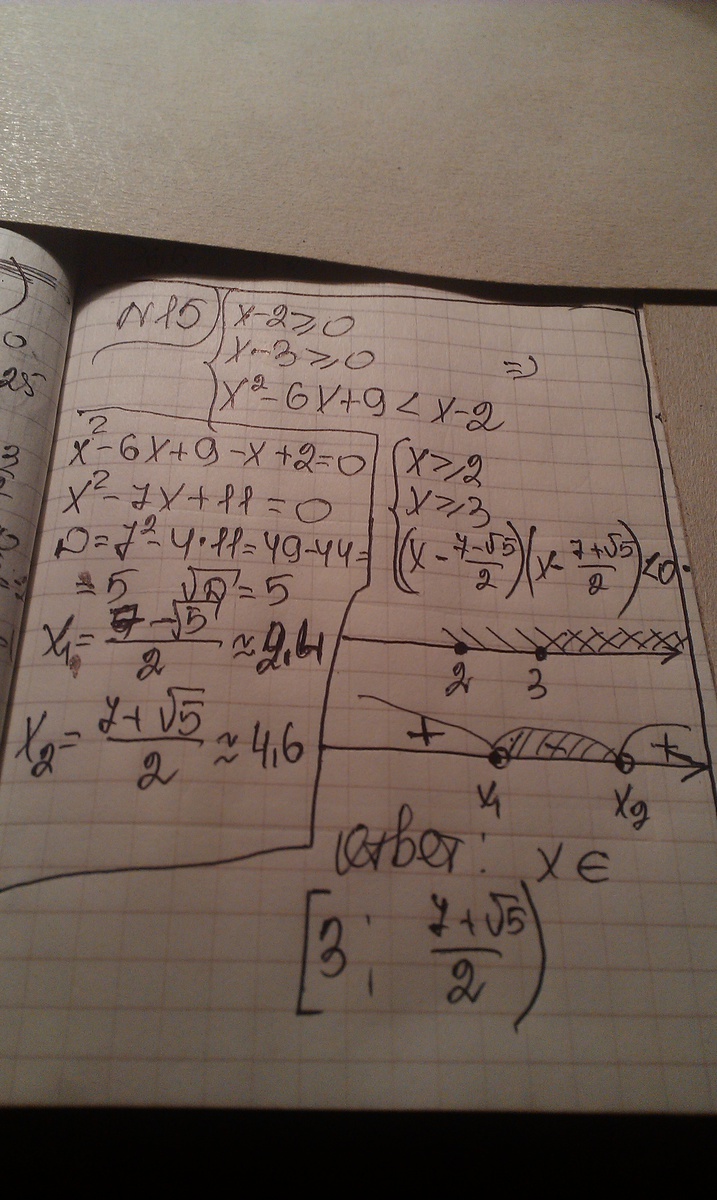 N15 { x-2≥0
x-3≥0 =>
x²-6x+9<x-2
x²-6x+9-x+2=0
x²-7x+11=0
D=7²-4·11=49-44=
=5 √D=5
x₁= (7-√5)/2 ≈
x₂= (7+√5)/2 ≈4,6
{ x≥2
x≥3
(x-(7-√5)/2)(x-(7+√5)/2)<0
2 3
+ +
x₁ x₂
Ответ: x∈
[3; (7+√5)/2)
0
25